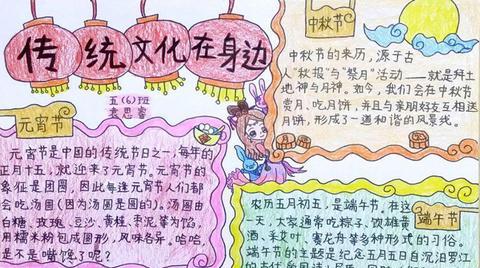 传统文化在身边
五(6)班
袁思睿
元宵节
元宵节是中国的传统节日之一,每年的
正月十五,就迎来了元宵节。元宵节的
象征是团圆,因此每逢元宵节人们都
会吃汤圆(因为汤圆是圆的)。汤圆由
白糖、玫瑰、豆沙、黄桂、枣泥等为馅,
用糯米粉包成圆形,风味各异,哈哈,
是不是嘴馋了呢?
中秋节
中秋节的来历,源于古
人"秋报"与"祭月"活动——就是拜土
地神与月神。如今,我们会在中秋节
赏月、吃月饼,并且与亲朋好友互相送
月饼,形成了一道和谐的风景线。
农历五月初五,是端午节。在这
一天,大家通常吃粽子、饮雄黄
酒、采艾叶、赛龙舟等多种形式的习俗。
端午节
端午节的主题是纪念五月五日自沉汨罗江